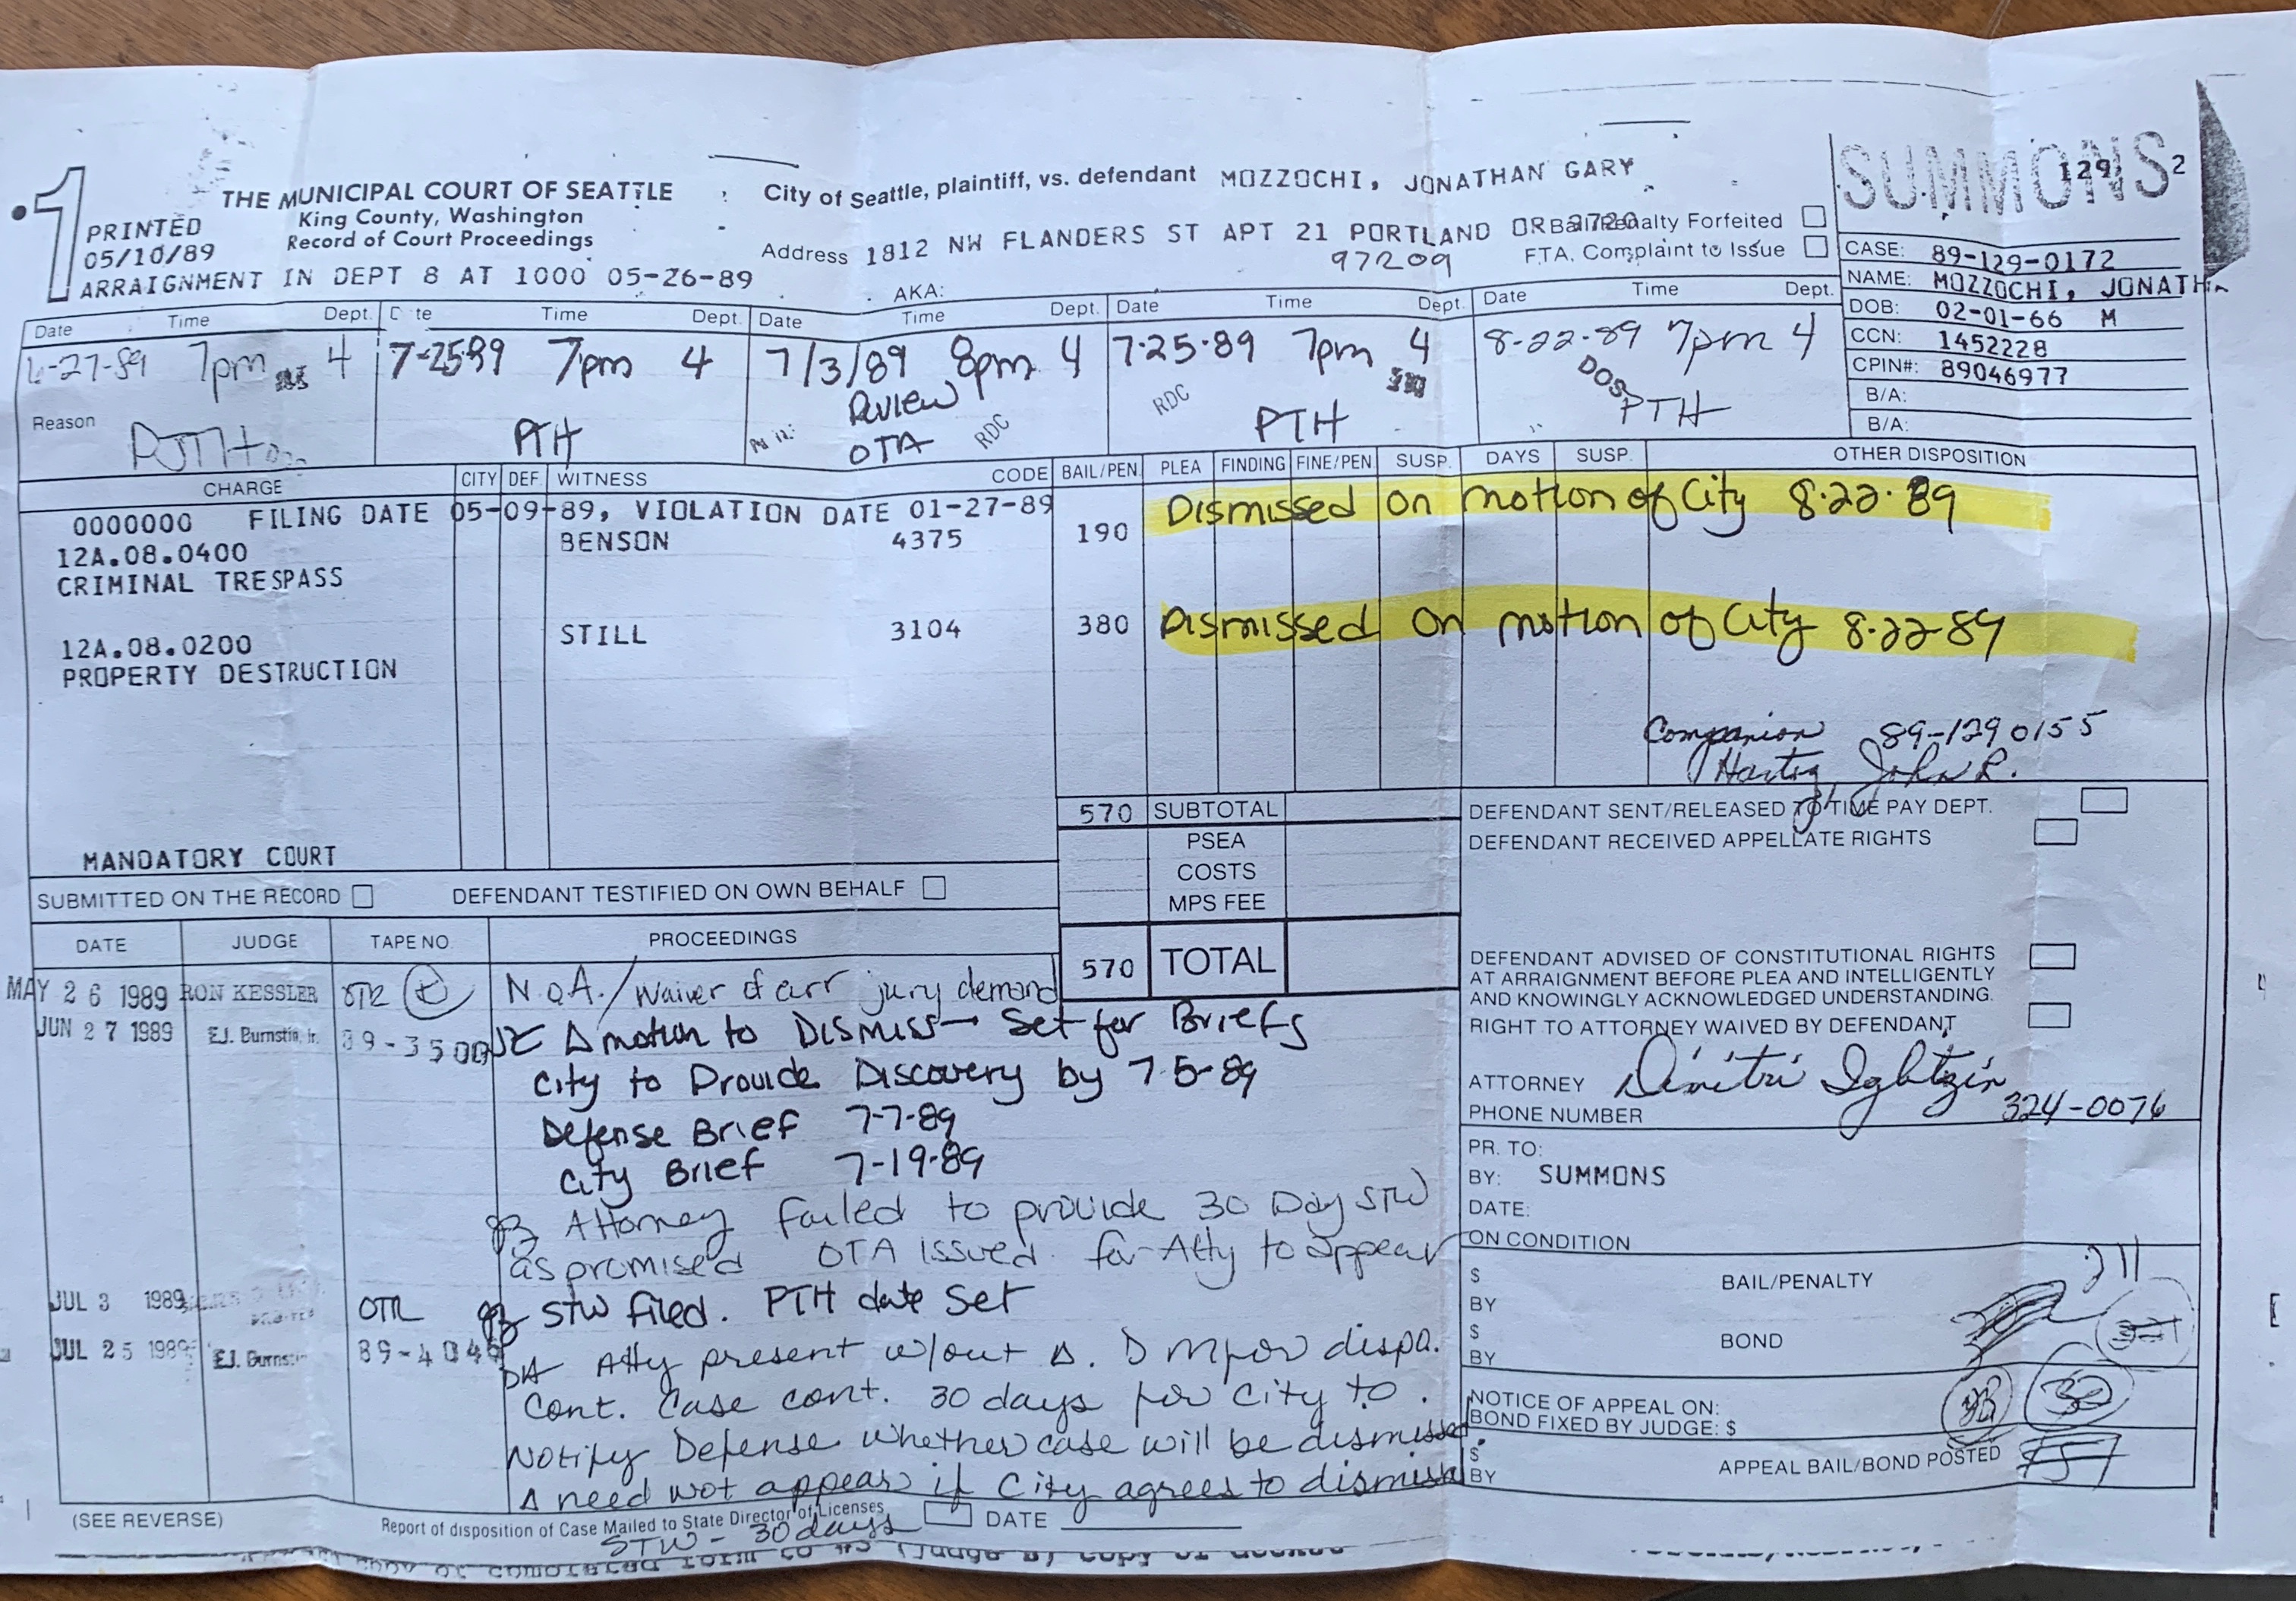 SUMMONS
129
2
1
THE MUNICIPAL COURT OF SEATTLE
King County, Washington
Record of Court Proceedings
PRINTED
05/10/89
ARRAIGNMENT IN DEPT 8 AT 1000 05-26-89
City of Seattle, plaintiff, vs. defendant MOZZOCHI, JONATHAN GARY
Address 1812 NW FLANDERS ST APT 21 PORTLAND OR
97209
Bail/Penalty Forfeited
F.T.A. Complaint to Issue
AKA:
CASE: 89-129-0172
NAME: MOZZOCHI, JONATH
DOB: 02-01-66 M
CCN: 1452228
CPIN#: 89046977
B/A:
B/A:
Date Time Dept. Date Time Dept. Date Time Dept. Date Time Dept. Date Time Dept.
6-27-89 7pm 4 7-25-89 7pm 4 7/3/89 8pm 4 7-25-89 7pm 4 8-22-89 7pm 4
Reason
PTH
Review
OTA
RDC
RDC
PTH
DOS
PTH
CHARGE CITY DEF. WITNESS CODE BAIL/PEN. PLEA FINDING FINE/PEN. SUSP. DAYS SUSP. OTHER DISPOSITION
0000000 FILING DATE 05-09-89, VIOLATION DATE 01-27-89
12A.08.0400 BENSON 4375 190 Dismissed on motion of City 8-22-89
CRIMINAL TRESPASS
12A.08.0200 STILL 3104 380 Dismissed on motion of City 8-22-89
PROPERTY DESTRUCTION
Companion 89-1290155
John R.
MANDATORY COURT
570 SUBTOTAL
PSEA
COSTS
MPS FEE
570 TOTAL
DEFENDANT SENT/RELEASED TO TIME PAY DEPT.
DEFENDANT RECEIVED APPELLATE RIGHTS
SUBMITTED ON THE RECORD DEFENDANT TESTIFIED ON OWN BEHALF
DEFENDANT ADVISED OF CONSTITUTIONAL RIGHTS
AT ARRAIGNMENT BEFORE PLEA AND INTELLIGENTLY
AND KNOWINGLY ACKNOWLEDGED UNDERSTANDING.
RIGHT TO ATTORNEY WAIVED BY DEFENDANT
ATTORNEY Dmitri Iglitzin
PHONE NUMBER 324-0076
DATE JUDGE TAPE NO. PROCEEDINGS
MAY 26 1989 RON KESSLER OTR N.O.A./Waiver of arr jury demand
JUN 27 1989 E.J. Burnstin, jr. 89-3500 Δ motion to Dismiss → Set for Briefs
City to Provide Discovery by 7-5-89
Defense Brief 7-7-89
City Brief 7-19-89
Attorney failed to provide 30 Day STW
as promised OTA issued for Atty to appear
JUL 3 1989 OTR STW filed. PTH date set
JUL 25 1989 E.J. Burnstin 89-404 Atty present w/out Δ. D M for dispo.
Cont. Case cont. 30 days for City to
Notify Defense whether case will be dismissed.
Δ need not appear if City agrees to dismiss
PR. TO:
BY: SUMMONS
DATE:
ON CONDITION
$ BAIL/PENALTY
BY
$ BOND
BY
NOTICE OF APPEAL ON:
BOND FIXED BY JUDGE: $
$ APPEAL BAIL/BOND POSTED
BY
(SEE REVERSE)
Report of disposition of Case Mailed to State Director of Licenses DATE
STW - 30 days